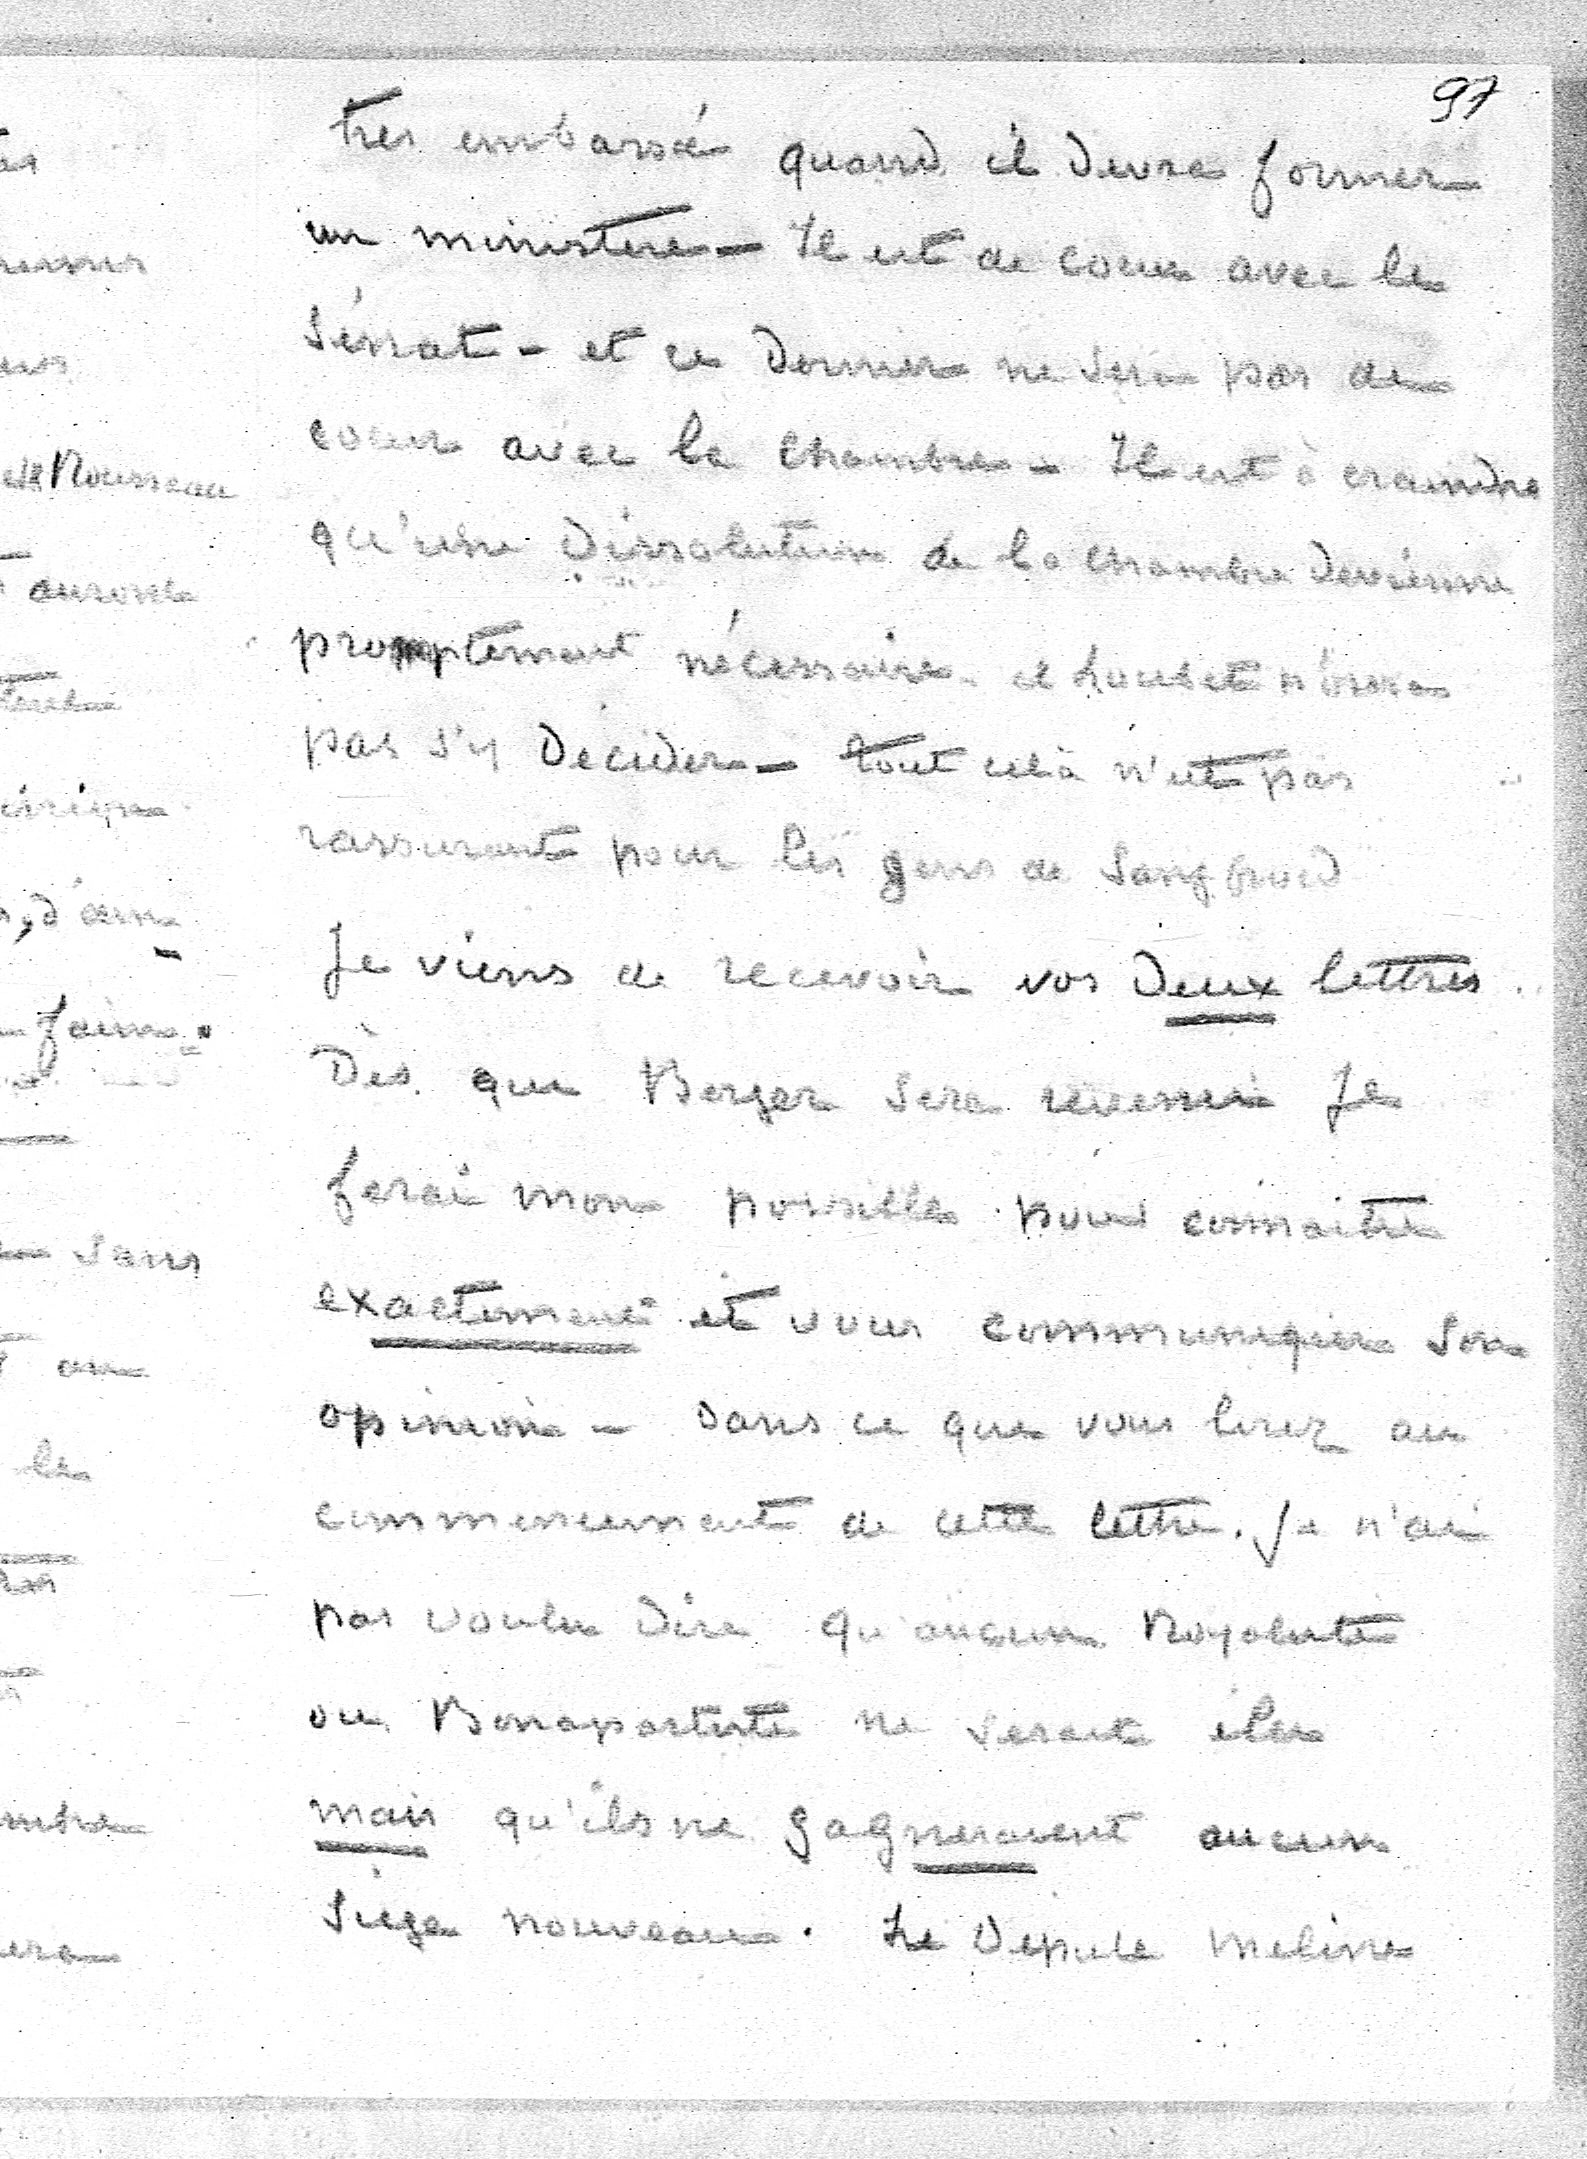 97
tres embarsé quand il devra former
un ministere - Il est de coeur avec le
Sénat - et ce dernier ne sera pas de
coeur avec la Chambre - Il est à craindre
qu'une dissolution de la chambre devienne
promptement nécessaire. et Loubet n'osera
pas s'y decider - tout cela n'est pas
rassurant pour les gens de sang froid
Je viens de recevoir vos deux lettres
Dès que Berger sera revenu je
ferai mon possible pour connaitre
exactement et vous communiquer son
opinion - dans ce que vous lirez au
commencement de cette lettre. Je n'ai
pas voulu dire qu'aucun Royaliste
ou Bonapartiste ne serait élu
mais qu'ils ne gagneraient aucun
siège nouveau. Le Député Meline
Rousseau
d'un
faim.
sans
au
le